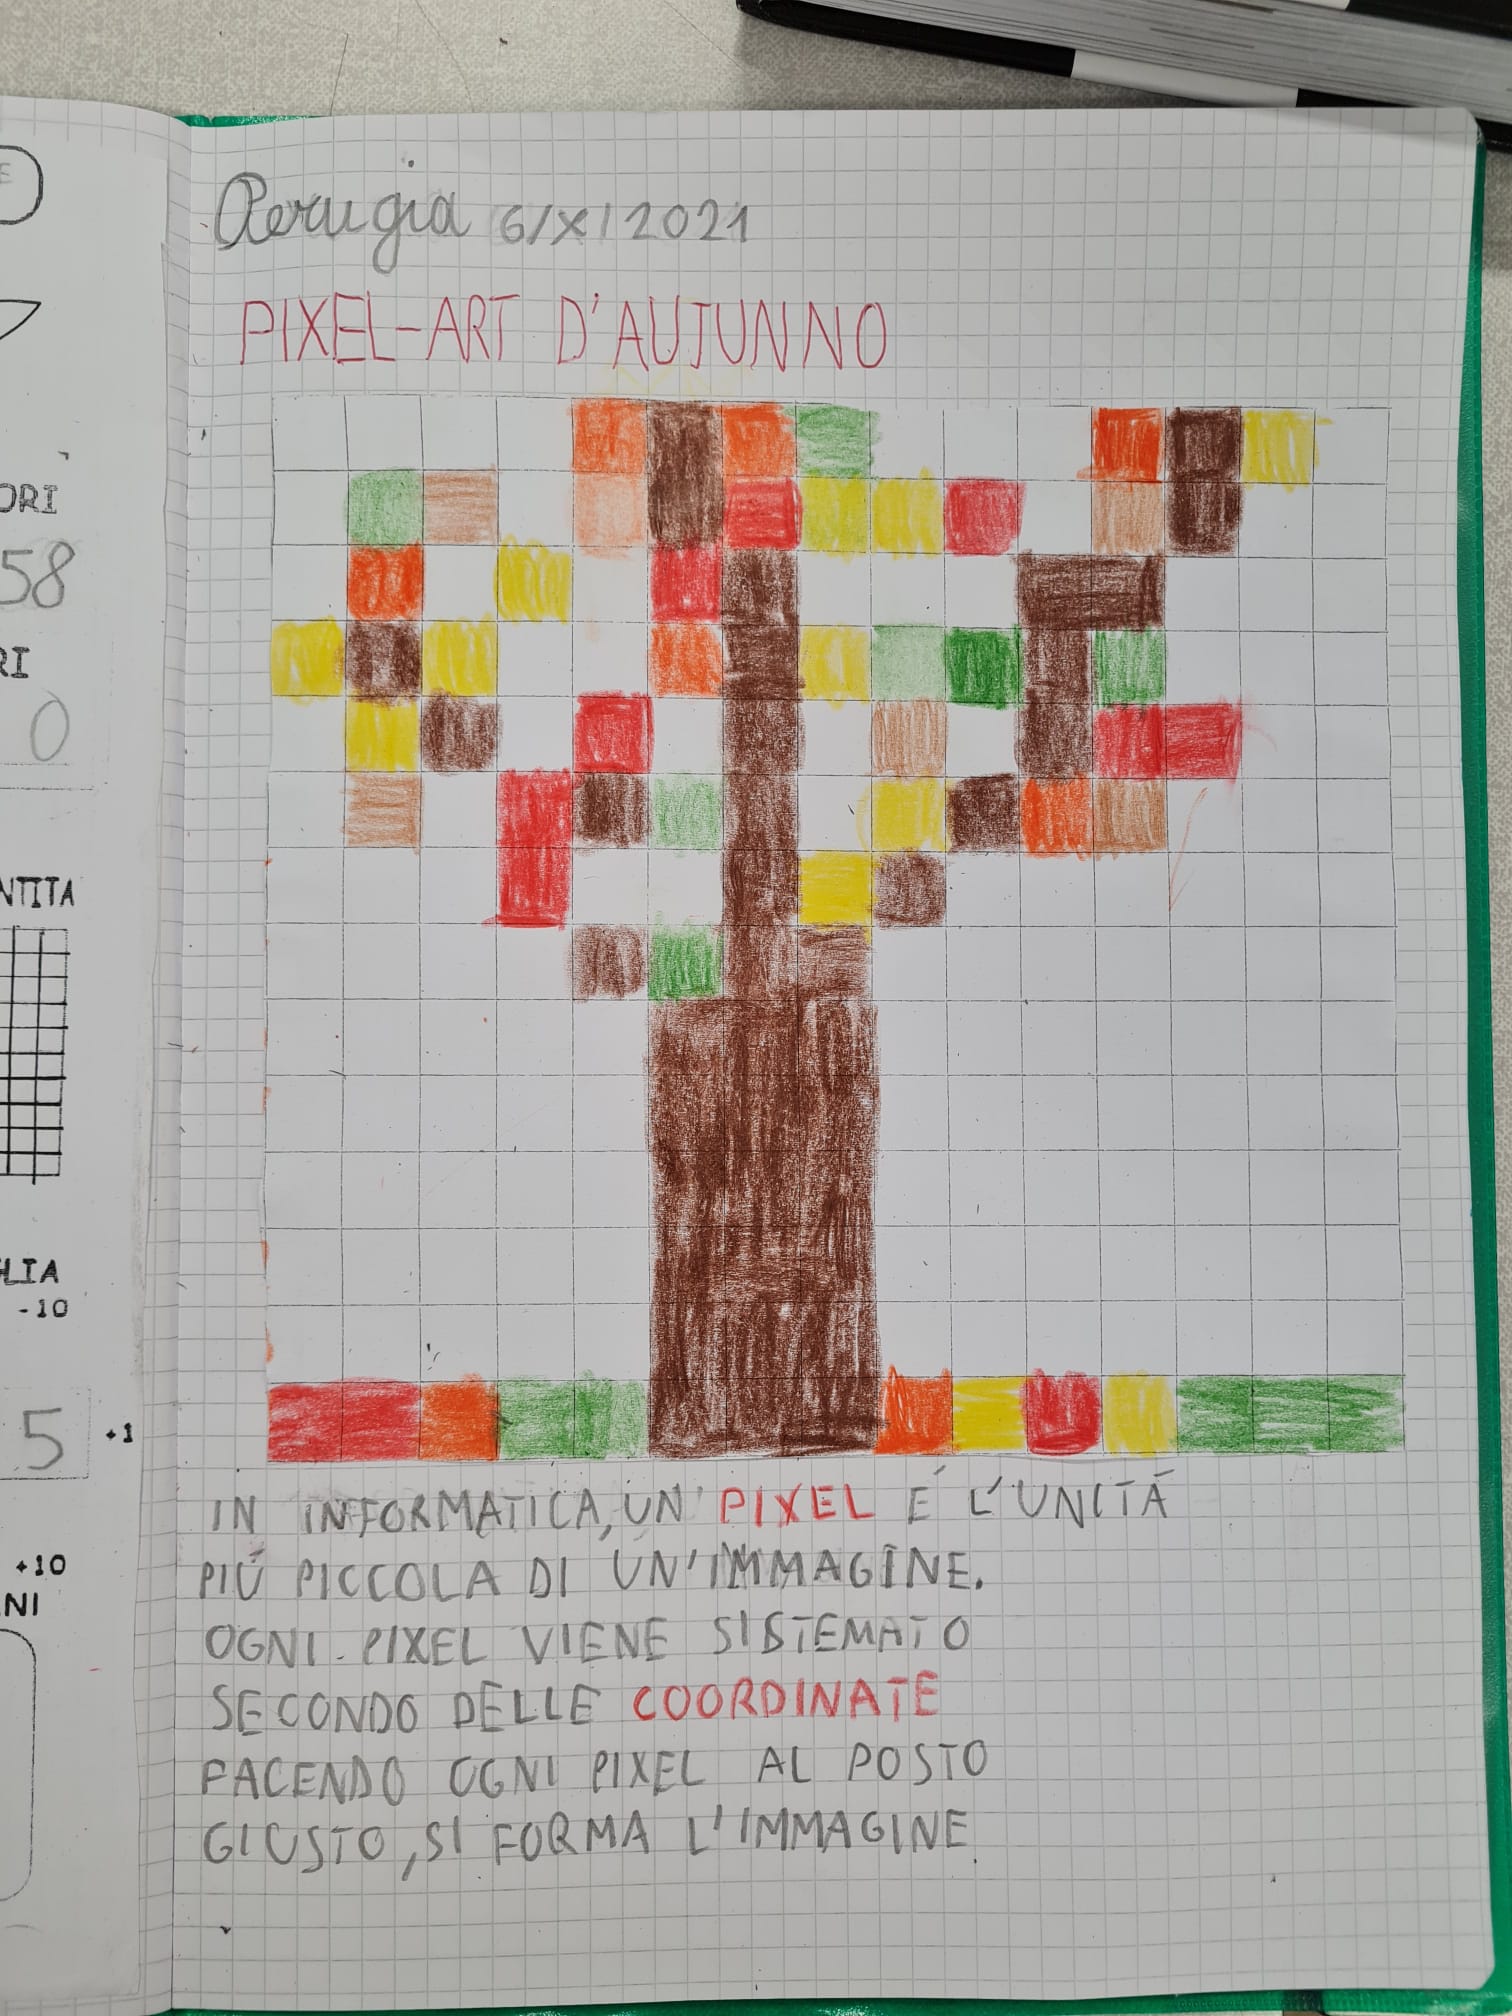 Perugia 6/X/2021
PIXEL-ART D'AUTUNNO
IN INFORMATICA, UN' PIXEL É L'UNITÀ
PIÚ PICCOLA DI UN'IMMAGINE.
OGNI PIXEL VIENE SISTEMATO
SECONDO DELLE COORDINATE
FACENDO OGNI PIXEL AL POSTO
GIUSTO, SI FORMA L'IMMAGINE.
E
ORI
58
RI
0
NTITA
LIA
-10
5 +1
+10
NI